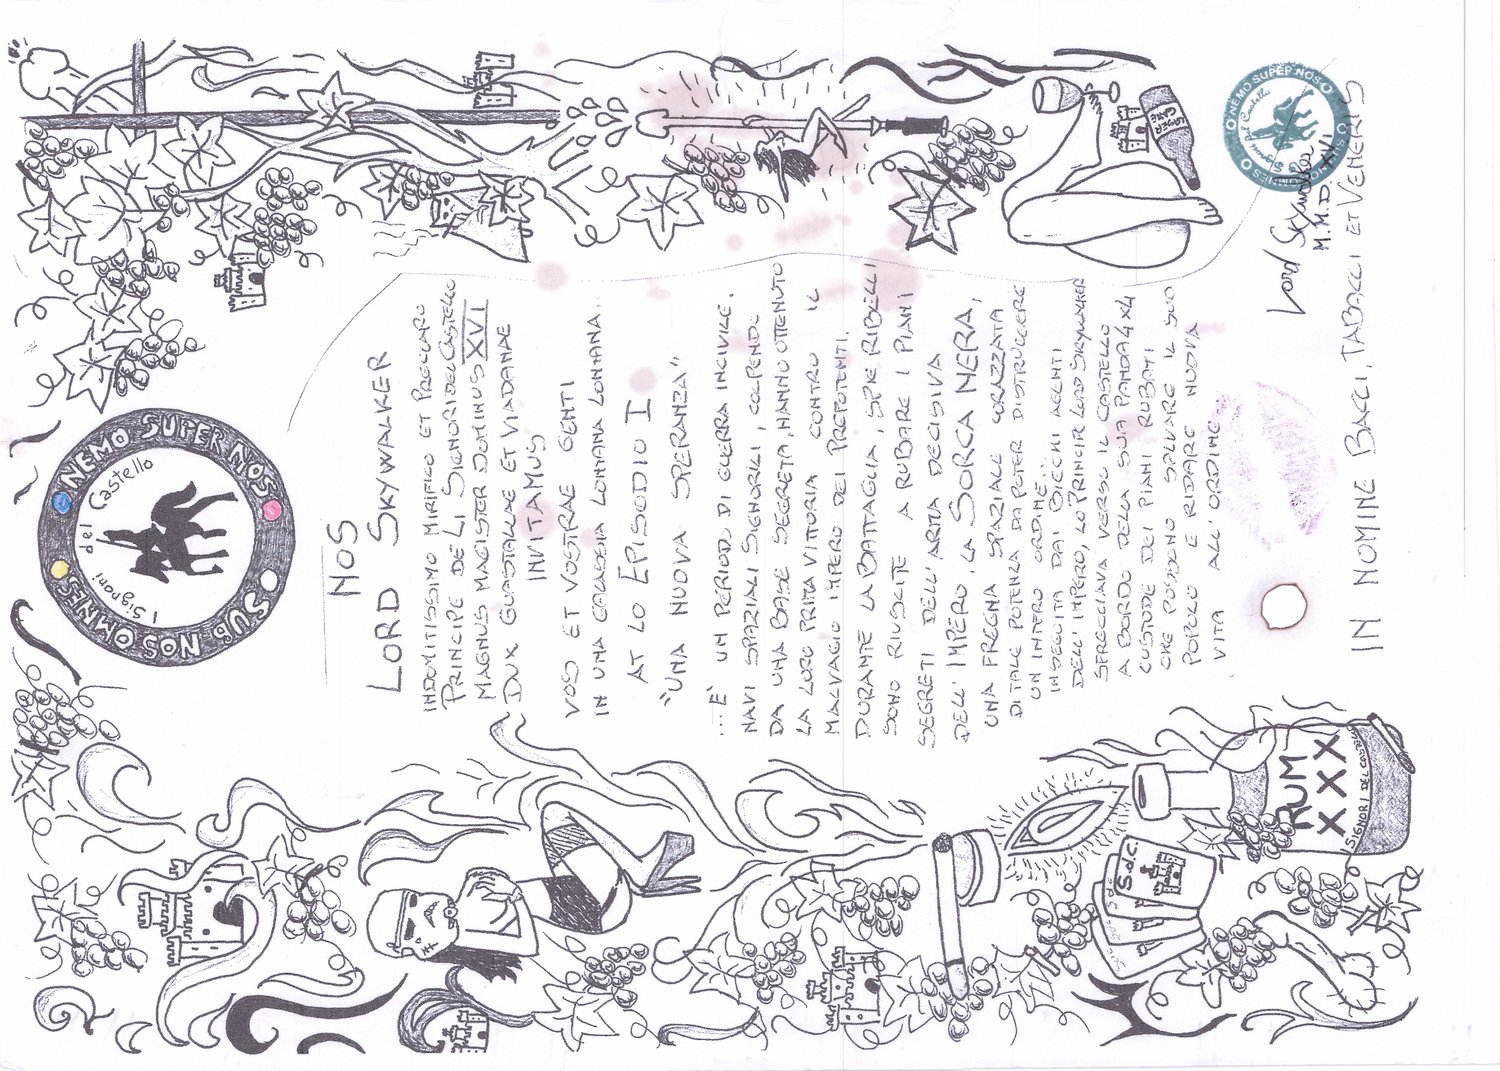 NEMO SUPER NOS
SUB NOS OMNES
I Signori del Castello
NOS
LORD SKYWALKER
INDOMITISSIMO MIRIFICO ET PRECLARO
PRINCIPE DE LI SIGNORI DEL CASTELLO
MAGNUS MAGISTER DOMINUS XVI
DUX GUASTALLAE ET VIADANAE
INVITAMUS
VOS ET VOSTRAE GENTI
IN UNA GALASSIA LONTANA LONTANA..
AT LO EPISODIO I
"UNA NUOVA SPERANZA"
...È UN PERIODO DI GUERRA INCIVILE.
NAVI SPAZIALI SIGNORILI, COLPENDO
DA UNA BASE SEGRETA, HANNO OTTENUTO
LA LORO PRIMA VITTORIA CONTRO IL
MALVAGIO IMPERO DEI PREPOTENTI.
DURANTE LA BATTAGLIA, SPIE RIBELLI
SONO RIUSCITE A RUBARE I PIANI
SEGRETI DELL'ARMA DECISIVA
DELL'IMPERO, LA SORCA NERA,
UNA FREGNA SPAZIALE CORAZZATA
DI TALE POTENZA DA POTER DISTRUGGERE
UN INTERO ORDINE.
INSEGUITA DAI BIECHI AGENTI
DELL'IMPERO, LO PRINCIPE LORD SKYWALKER
SFRECCIAVA VERSO IL CASTELLO
A BORDO DELLA SUA PANDA 4x4
CUSTODE DEI PIANI RUBATI
CHE POSSONO SALVARE IL SUO
POPOLO E RIDARE NUOVA
VITA ALL'ORDINE
IN NOMINE BACCI, TABACCI ET VENERIS
Lord Skywalker
M.M.D. XVI
NEMO SUPER NOS
SUB NOS OMNES
I Signori del Castello
S.d.C.
RUM
XXX
SIGNORI DEL CASTELLO